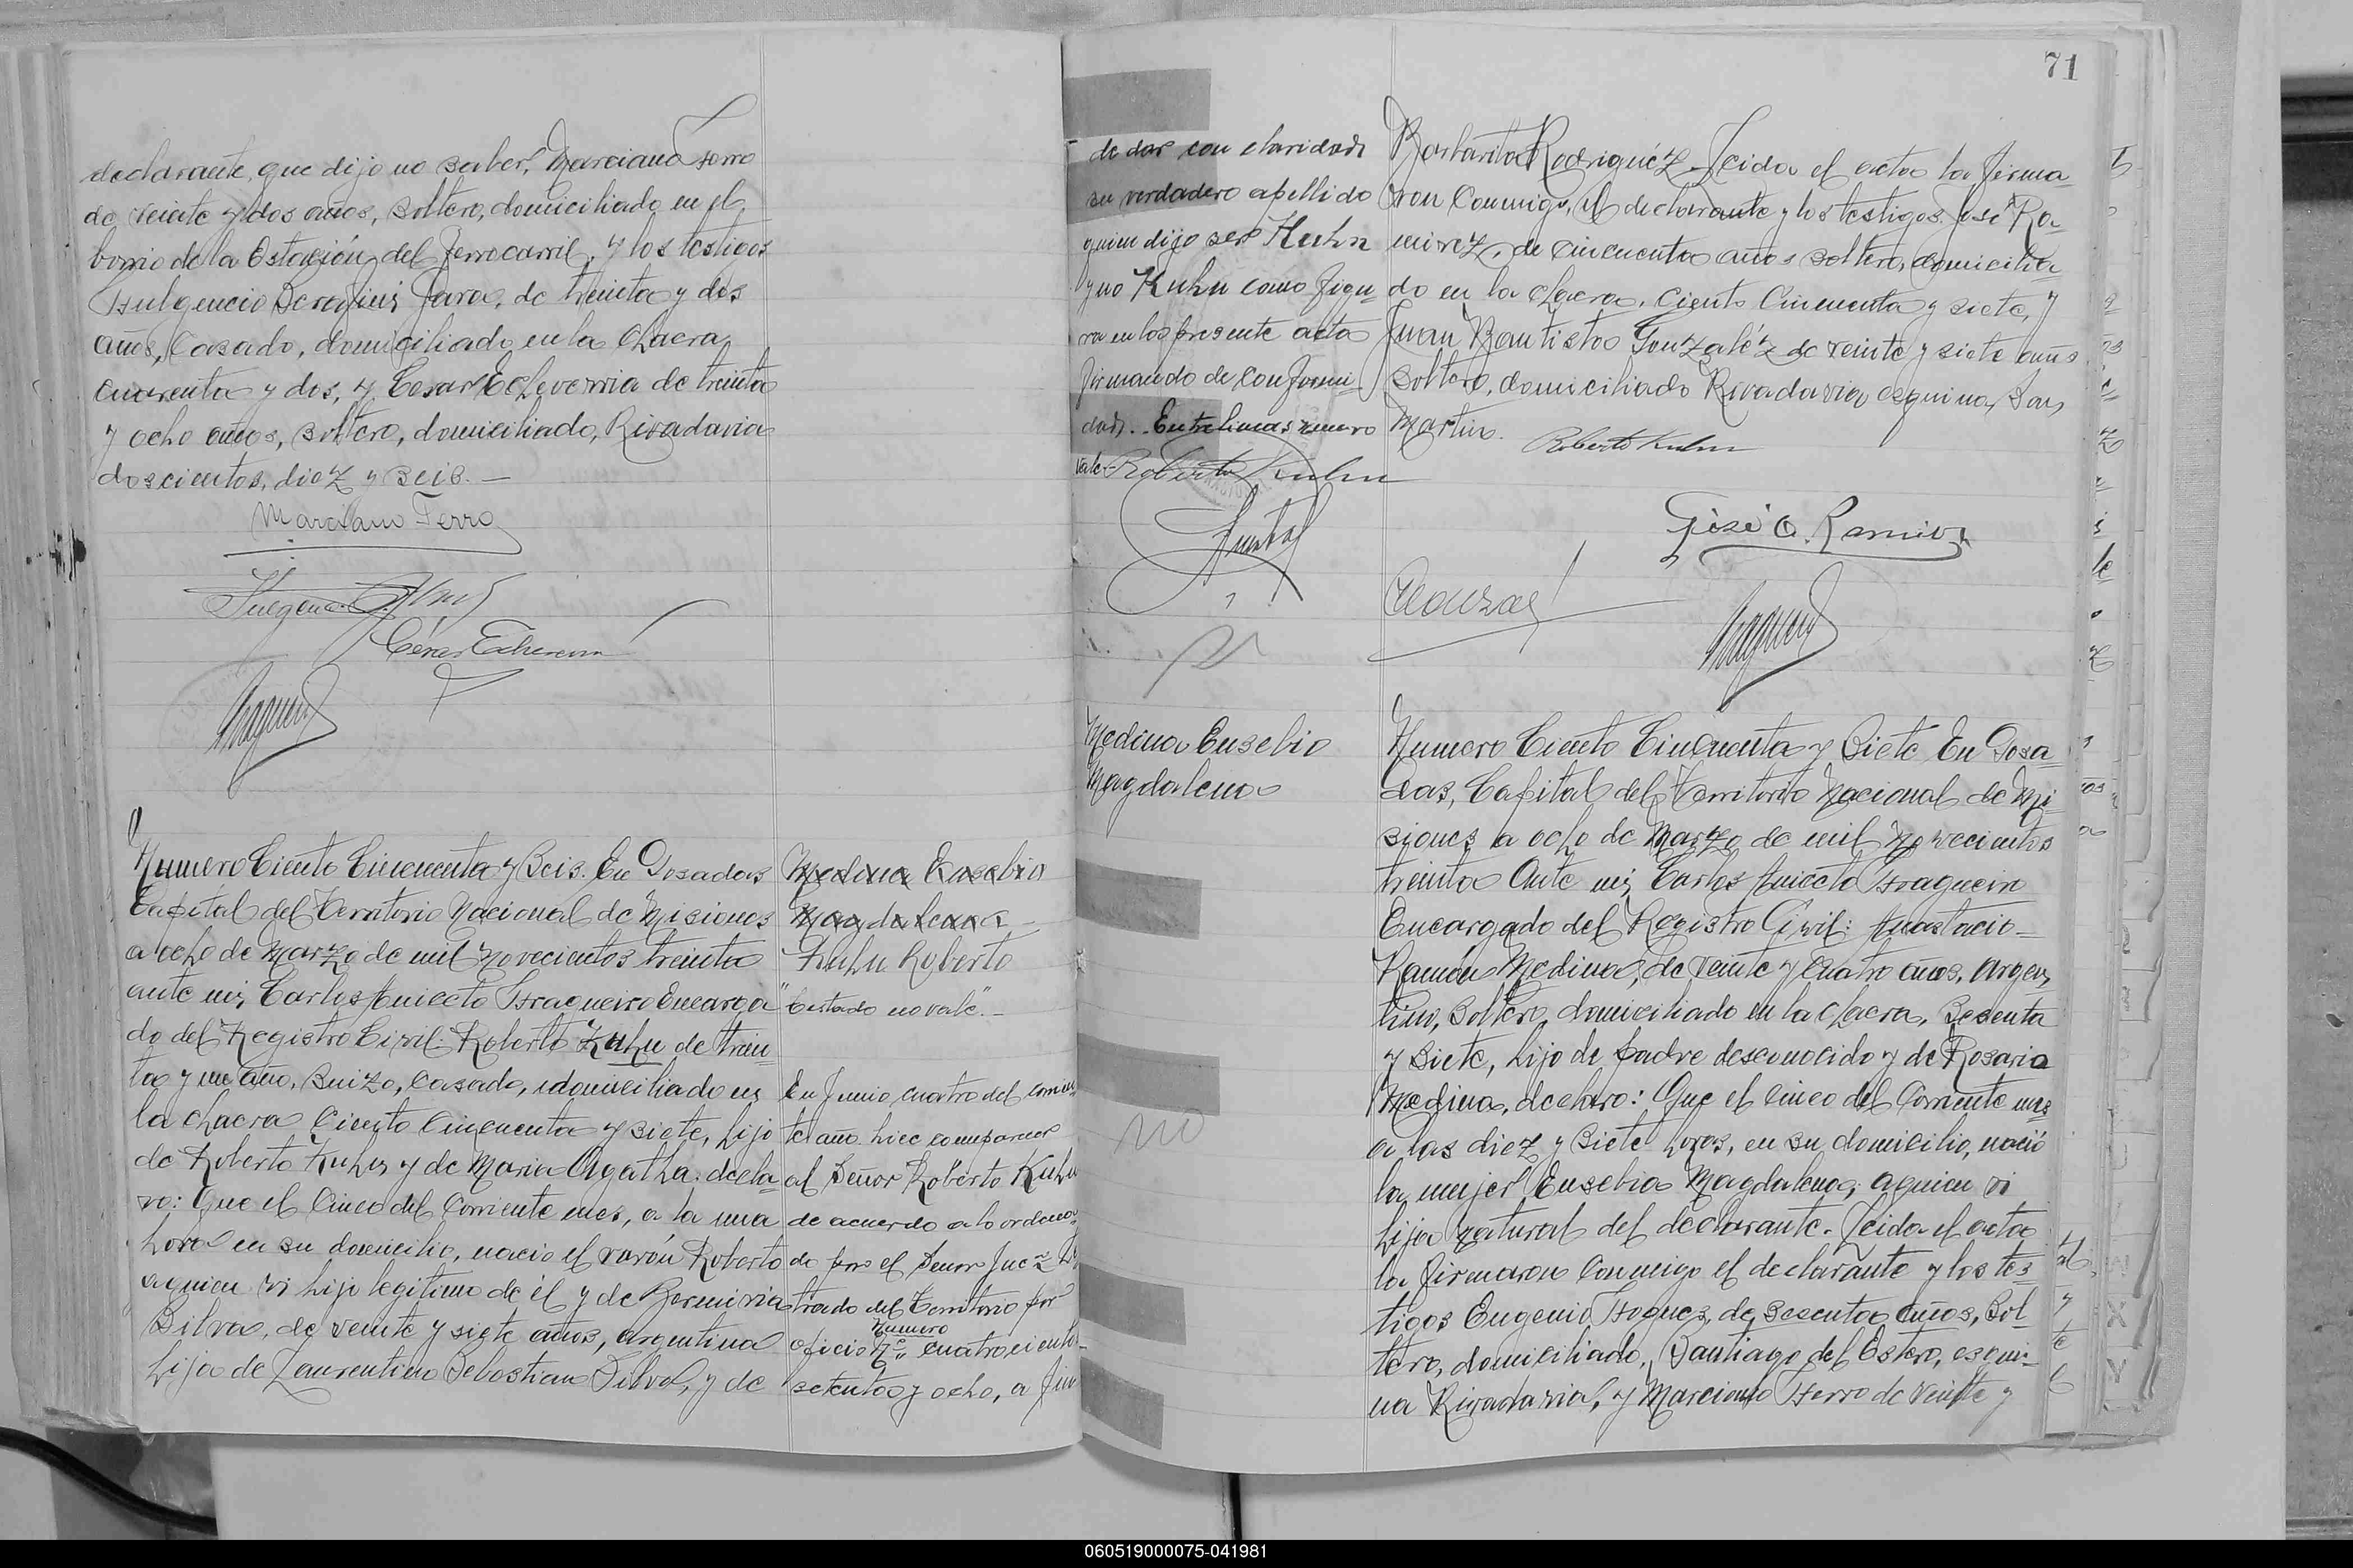 declarante, que dijo no saber, Marciano Ferro
de veinte y dos años, soltero, domiciliado en el
barrio de la Estación del Ferrocarril, y los testigos
Fulgencio Serafini Jara, de treinta y dos
años, Casado, domiciliado en la Chacra
cuarenta y dos, y Cesar Echeverria de treinta
y ocho años, soltero, domiciliado, Rivadavia
doscientos, diez y seis.—
Marciano Ferro
Cesar Echeverria
Numero Ciento Cincuenta y Seis. En Posadas
Capital del Territorio Nacional de Misiones
a ocho de Marzo de mil novecientos treinta
ante mi, Carlos Aniceto Fragueiro Encarga
do del Registro Civil: Roberto Kuhn de trein
ta y un año, Suizo, casado, domiciliado en
la chacra Ciento Cincuenta y siete, hijo
de Roberto Kuhn y de Maria Agatha: decla
ro: Que el Cinco del Corriente mes, a la una
hora en su domicilio, nació el varón Roberto
a quien vi hijo legitimo de él y de Herminia
Silva, de veinte y siete años, argentina
hija de Laurentino Sebastian Silva, y de
Medina Eusebia
Magdalena
Kuhn Roberto
"testado no vale".—
En Junio cuatro del corrien
te año hice comparecer
al Señor Roberto Kuhn
de acuerdo a lo ordena
do por el Señor Juez Le
trado del Territorio por
numero
oficio Nº cuatrocientos
setenta y ocho, a fin
71
de dar con claridad
su verdadero apellido
quien dijo ser Huhn
y no Kuhn como figu-
ra en la presente acta
firmando de conformi-
dad.. Entrelineas: numero
vale.- Roberto Kuhn
Barbarita Rodriguéz. Leida el acta la firma
ron Conmigo, el declarante y los testigos José Ra
mirez, de cincuenta años soltero, domicilia
do en la chacra, Ciento Cincuenta y siete, y
Juan Bautista Gonzaléz de veinte y siete años
soltero, domiciliado Rivadavia esquina, San
Martin.
Roberto Kuhn
José A. Ramirez
Medina Eusebia
Magdalena
no
Numero Ciento Cincuenta y Siete En Posa
das, Capital del Territorio Nacional de Mi
siones a ocho de Marzo de mil novecientos
treinta Ante mi, Carlos Aniceto Fragueiro
Encargado del Registro Civil: Anastacio
Ramón Medina, de veinte y cuatro años, argen
tino, soltero, domiciliado en la chacra, Sesenta
y Siete, hijo de padre desconocido y de Rosaria
Medina, declaro: Que el cinco del Corriente mes
a las diez y siete horas, en su domicilio, nació
la mujer Eusebia Magdalena, a quien vi
hija natural del declarante. Leida el acta
la firmaron Conmigo el declarante y los tes
tigos Eugenio Foques, de sesenta años, Sol
tero, domiciliado, Santiago del Estero, esqui-
na Rivadavia, y Marciano Ferro de veinte y
060519000075-041981